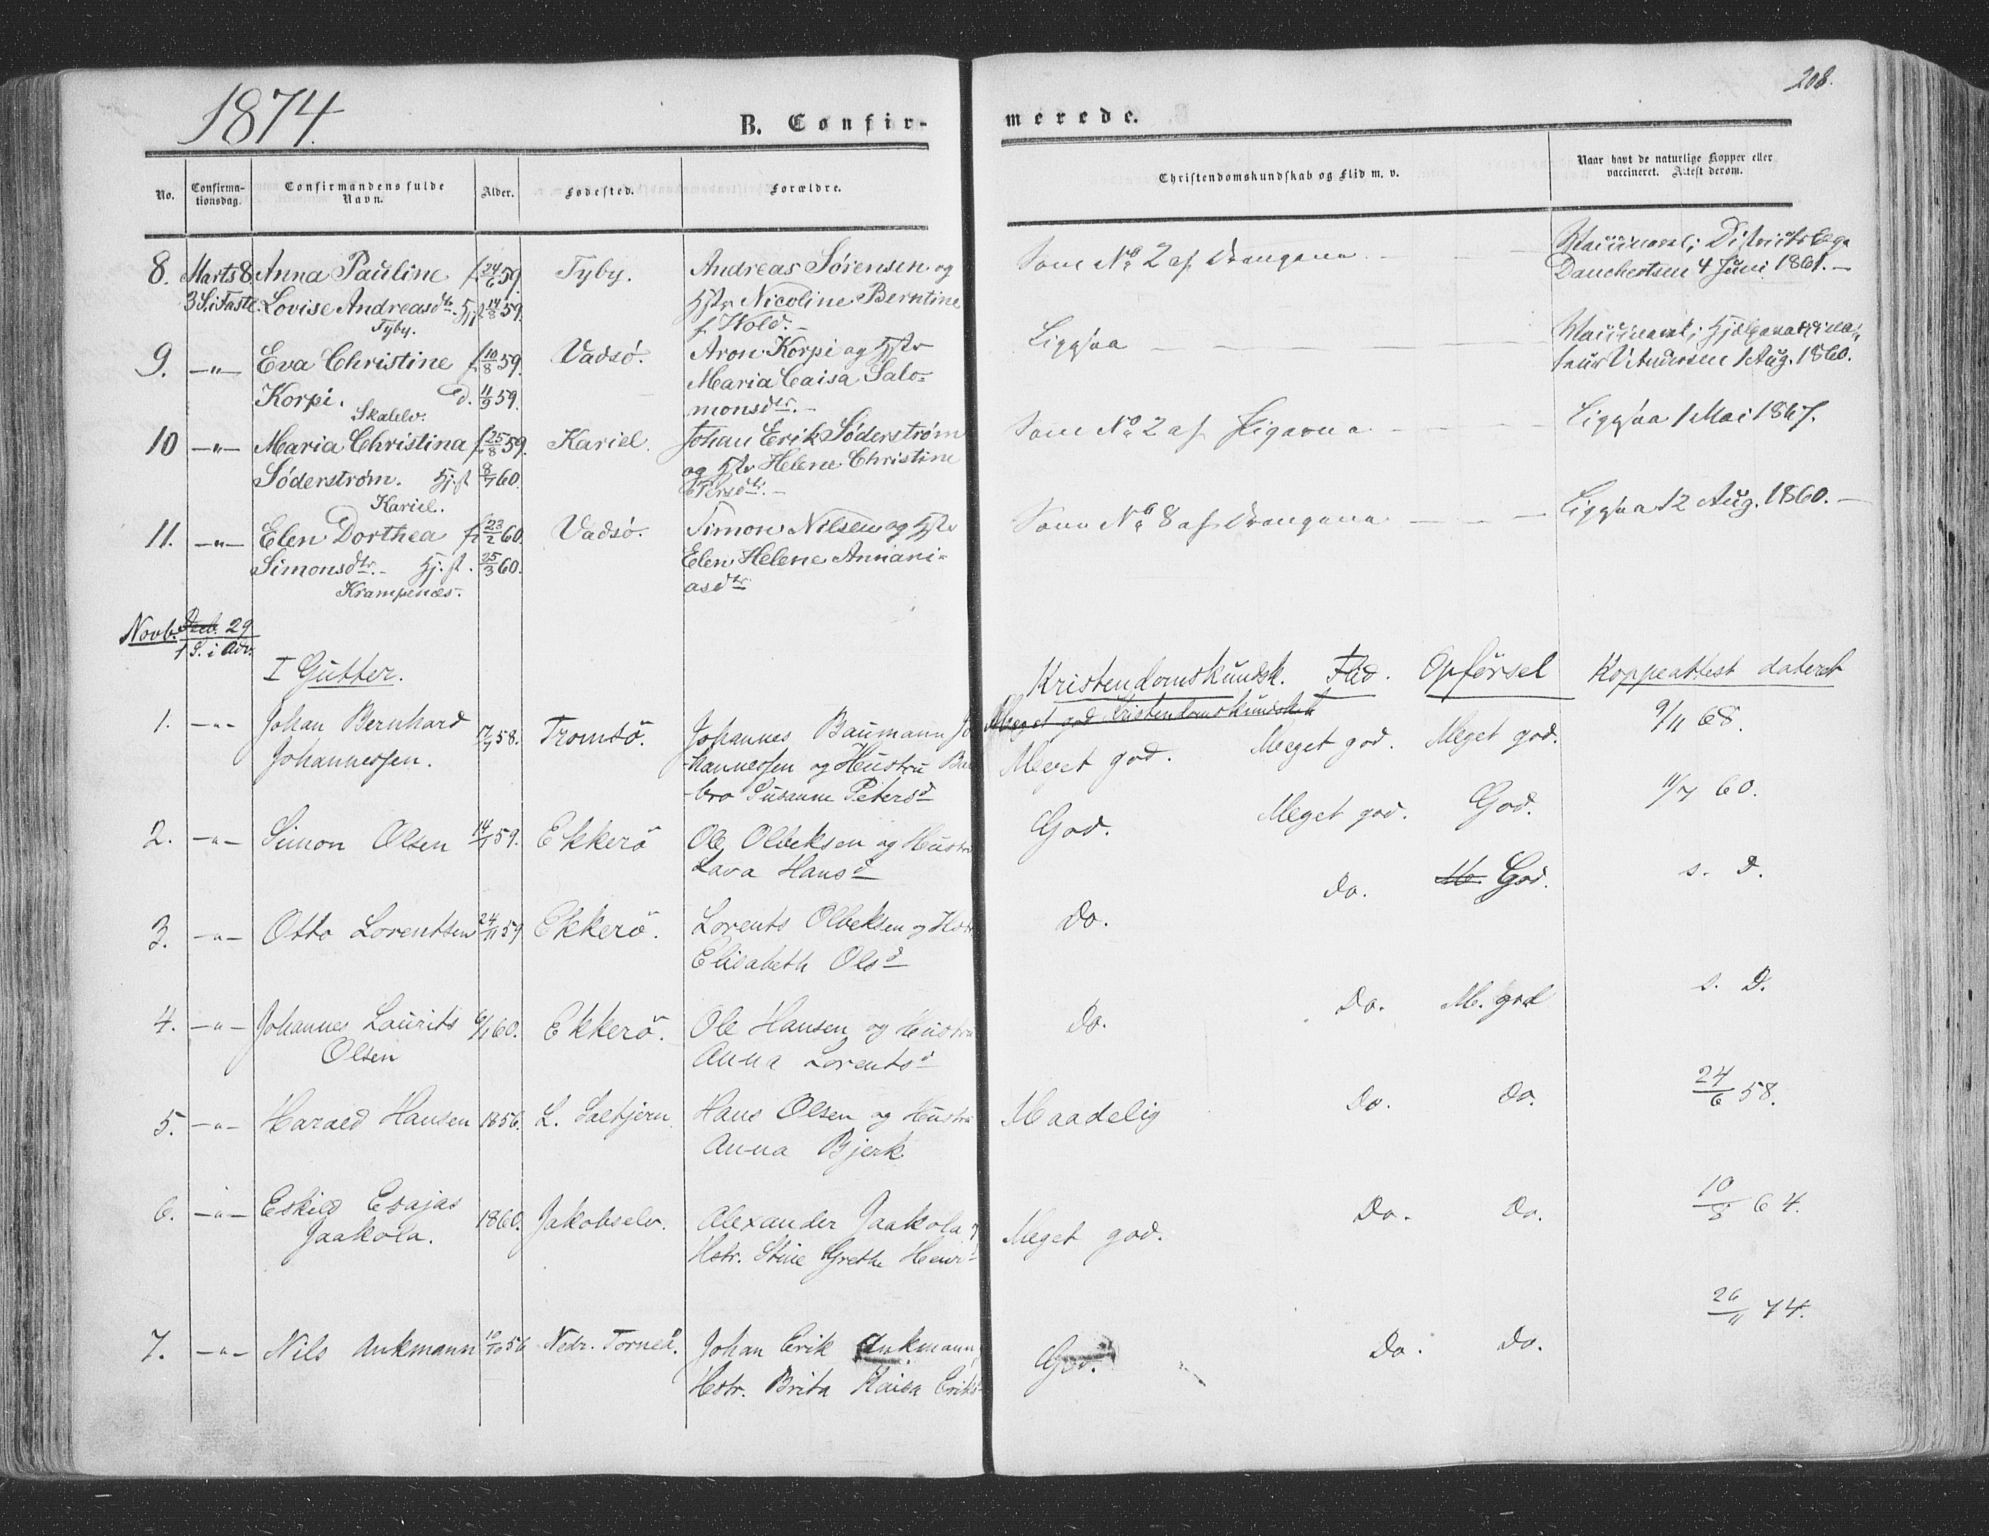 1874.
208.
B. Confir-
merede.
No.
Confirma-
tionsdag.
Confirmandens fulde
Navn.
Alder.
Fødested.
Forældre.
Christendomskundskab og Flid m. v.
Naar havt de naturlige Kopper eller
vaccineret. Attest derom.
8. Marts 8. Anna Pauline f. 24/6 59. Tyby. Andreas Sørensen og
3 S. i Faste. Lovise Andreasdtr. Hj.f. 14/8 59. Hstr Nicoline Berntine
Tyby. f. Wold.-
Som No 2 af Drengene
Vaccineret; Districtslæge
Danchertsen 4 Juni 1861.-
9. -"- Eva Christine f. 10/8 59. Vadsø. Aron Korpi og Hstr
Korpi. d. 11/9 59. Maria Caisa Salo-
Skalelv. monsdtr.-
Ligesaa
Vaccineret;
Andersen 1 Aug. 1860.
10 -"- Maria Christina f. 25/8 59. Kariel. Johan Erik Søderstrøm
Søderstrøm. Hj.f. 8/7 60. og Hstr Helene Christine
Kariel. Persdtr.-
Som No 2 af Pigerne
Ligesaa 1 Mai 1867.
11. -"- Elen Dorthea f. 23/2 60. Vadsø. Simon Nilsen og Hstr
Simonsdtr.- Hj.f. 25/3 60. Elen Helene Annani-
Krampenæs. asdtr
Som No 8 af Drengene
Ligesaa 12 Aug. 1860.-
Novb. Decb. 29
1 S. i Adv.
I Gutter.
Kristendomskundsk. Flid. Opførsel Koppeattest dateret
Meget god Kristendomskundskab
1. -"- Johan Bernhard 17/7 58. Tromsö. Johannes Baumann Jo
Johannessen. -hannessen og Hustru Bar
-bro Susanne Petersd
Meget god. Meget god. Meget god. 9/11 68.
2. -"- Simon Olsen 14/1 59. Ekkerö Ole Olbeksen og Hustru
Lava Hansd
God. Meget god. God. 11/7 60.
3. -"- Otto Lorentsen 24/11 59 Ekkerö. Lorents Olbeksen og Hstr
Elisabeth Olsd
Do. Do. M. God. s. D.
4. -"- Johannes Laurits 6/1 60. Ekkerö. Ole Hansen og Hustru
Olsen Anna Lorentsd
Do. Do. M. god s. D.
5. -"- Harald Hansen 1856. L. Hans Olsen og Hustru
Anna Bjerk
Maadelig Do. Do. 24/6 58.
6. -"- Eskild Esajas 1860. Jakobselv. Alexander Jaakola og
Jaakola. Hstr. Stine Grethe Henrd
Meget god. Do. Do. 10/8 64.
7. -"- Nils Ankmann 10/10 56 Nedr. Torneå. Johan Erik Ankmann,
Hstr. Brita Kaisa Eriks
God. Do. Do. 26/11 74.